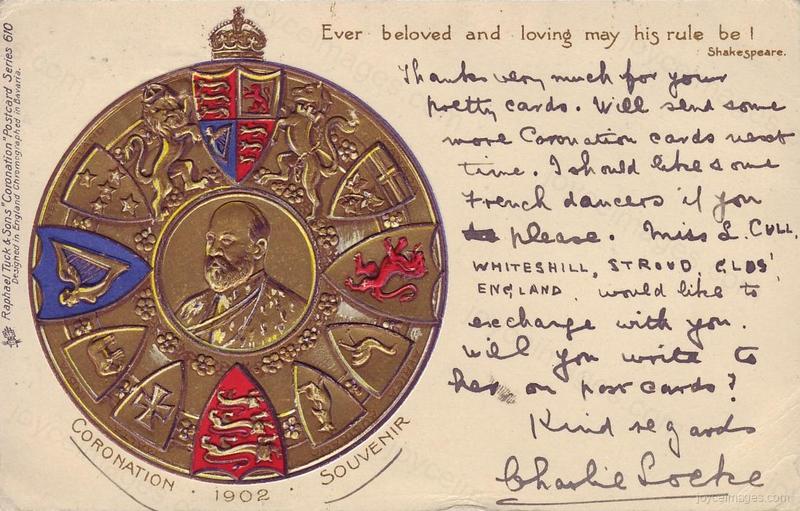 Raphael Tuck & Sons' "Coronation" Postcard Series 610
Designed in England Chromographed in Bavaria.
Ever beloved and loving may his rule be!
Shakespeare.
Thanks very much for your
pretty cards. Will send some
more Coronation cards next
time. I should like some
French dancers if you
please. Miss L. CULL,
WHITESHILL, STROUD, GLOS'
ENGLAND. would like to
exchange with you.
Will you write to
her on post cards?
Kind regards
Charlie Locke
CORONATION · 1902 · SOUVENIR
joyceimages.com